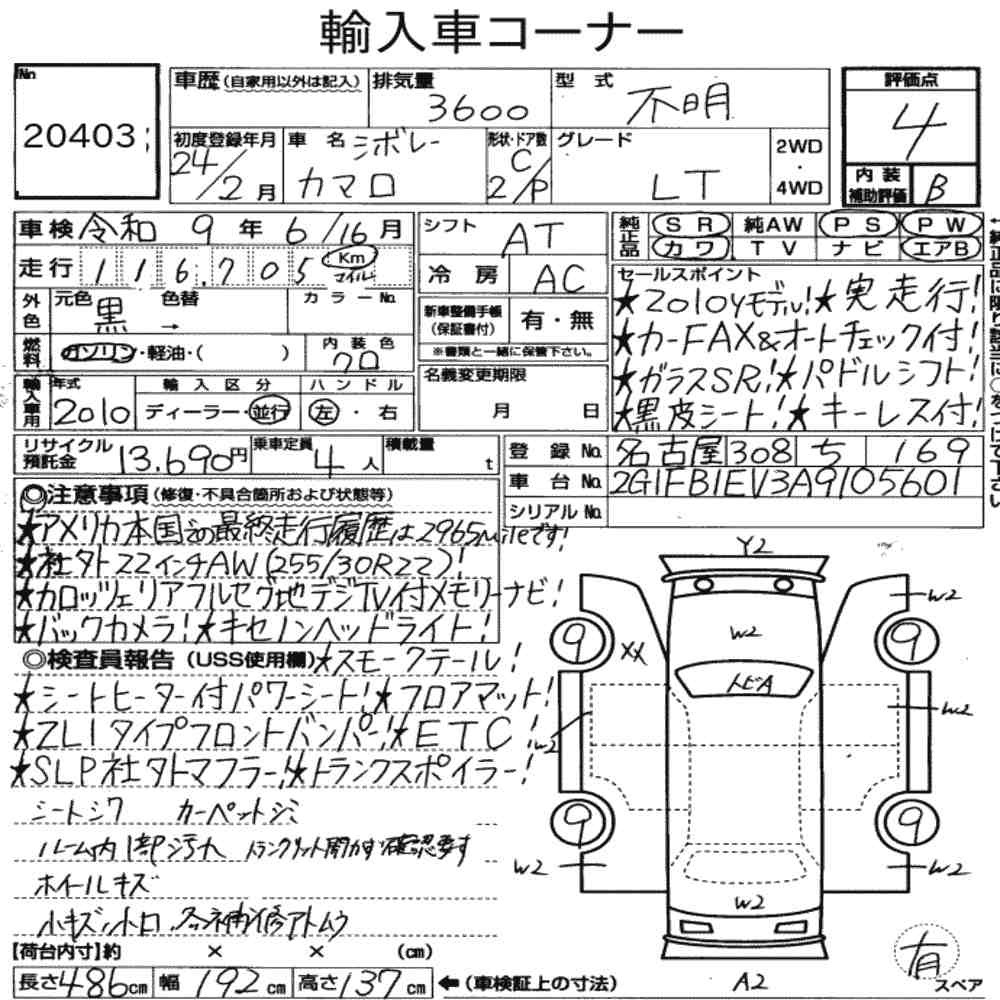 輸入車コーナー
No 20403
車歴(自家用以外は記入) 排気量 3600 型式 不明
評価点 4
初度登録年月 24/2月 車名 シボレー カマロ 形状・ドア数 C 2/P グレード LT 2WD・4WD
内装補助評価 B
車検 令和 9年 6/16月 シフト AT
純正品 SR 純AW PS PW
カワ TV ナビ エアB
走行 116,705 Km マイル 冷房 AC
外色 元色 黒 色替 → カラーNo.
新車整備手帳(保証書付) 有・無
※書類と一緒に保管下さい。
燃料 ガソリン・軽油・( ) 内装色 クロ
輸入車用 年式 2010 輸入区分 ディーラー・並行 ハンドル 左・右
名義変更期限 月 日
セールスポイント
★2010yモデル!★実走行!
★カーFAX&オートチェック付!
★ガラスSR!★パドルシフト!
★黒皮シート!★キーレス付!
リサイクル預託金 13,690円 乗車定員 4人 積載量 t
登録No. 名古屋 308 ち 169
車台No. 2G1FB1EV3A9105601
シリアルNo.
◎注意事項(修復・不具合箇所および状態等)
★アメリカ本国での最終走行履歴は2965mileです!
★社外22インチAW(255/30R22)!
★カロッツェリアフルセグ地デジTV付メモリーナビ!
★バックカメラ!★キセノンヘッドライト!
◎検査員報告(USS使用欄)★スモークテール!
★シートヒーター付パワーシート!★フロアマット!
★ZL1タイプフロントバンパー!★ETC!
★SLP社外マフラー!★トランクスポイラー!
シートシワ カーペットジミ
ルーム内1部汚れ トランクリット開かず確認要す
ホイールキズ
小キズ、小トロ、各補修アトムラ
【荷台内寸】約 × × (cm)
長さ486cm 幅192cm 高さ137cm ←(車検証上の寸法)
Y2
W2
9 XX W2 9
トビA
W2 W2
9 9
W2 W2
W2
A2
有
スペア